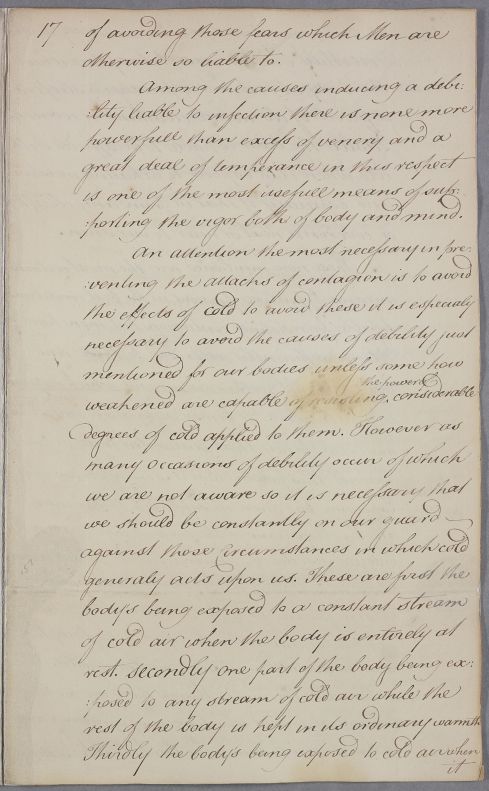 17 of avoiding those fears which Men are
otherwise so liable to.
Among the causes inducing a debi:
:lity liable to infection there is none more
powerfull than excess of venery and a
great deal of temperance in this respect
is one of the most usefull means of sup:
:porting the vigor both of body and mind.
An attention the most necessary in pre:
:venting the attacks of contagion is to avoid
the effects of cold to avoid these it is especialy
necessary to avoid the causes of debility just
mentioned for our bodies unless some how
the powers
weakened are capable of resisting, considerable
degrees of cold applied to them. However as
many occasions of debility occur of which
we are not aware so it is necessary that
we should be constantly on our guard
against those Circumstances in which cold
generaly acts upon us. These are first the
bodys being exposed to a constant stream
of cold air when the body is entirely at
rest. secondly one part of the body being ex:
:posed to any stream of cold air while the
rest of the body is kept in its ordinary warmth.
Thirdly the bodys being exposed to cold air when
it